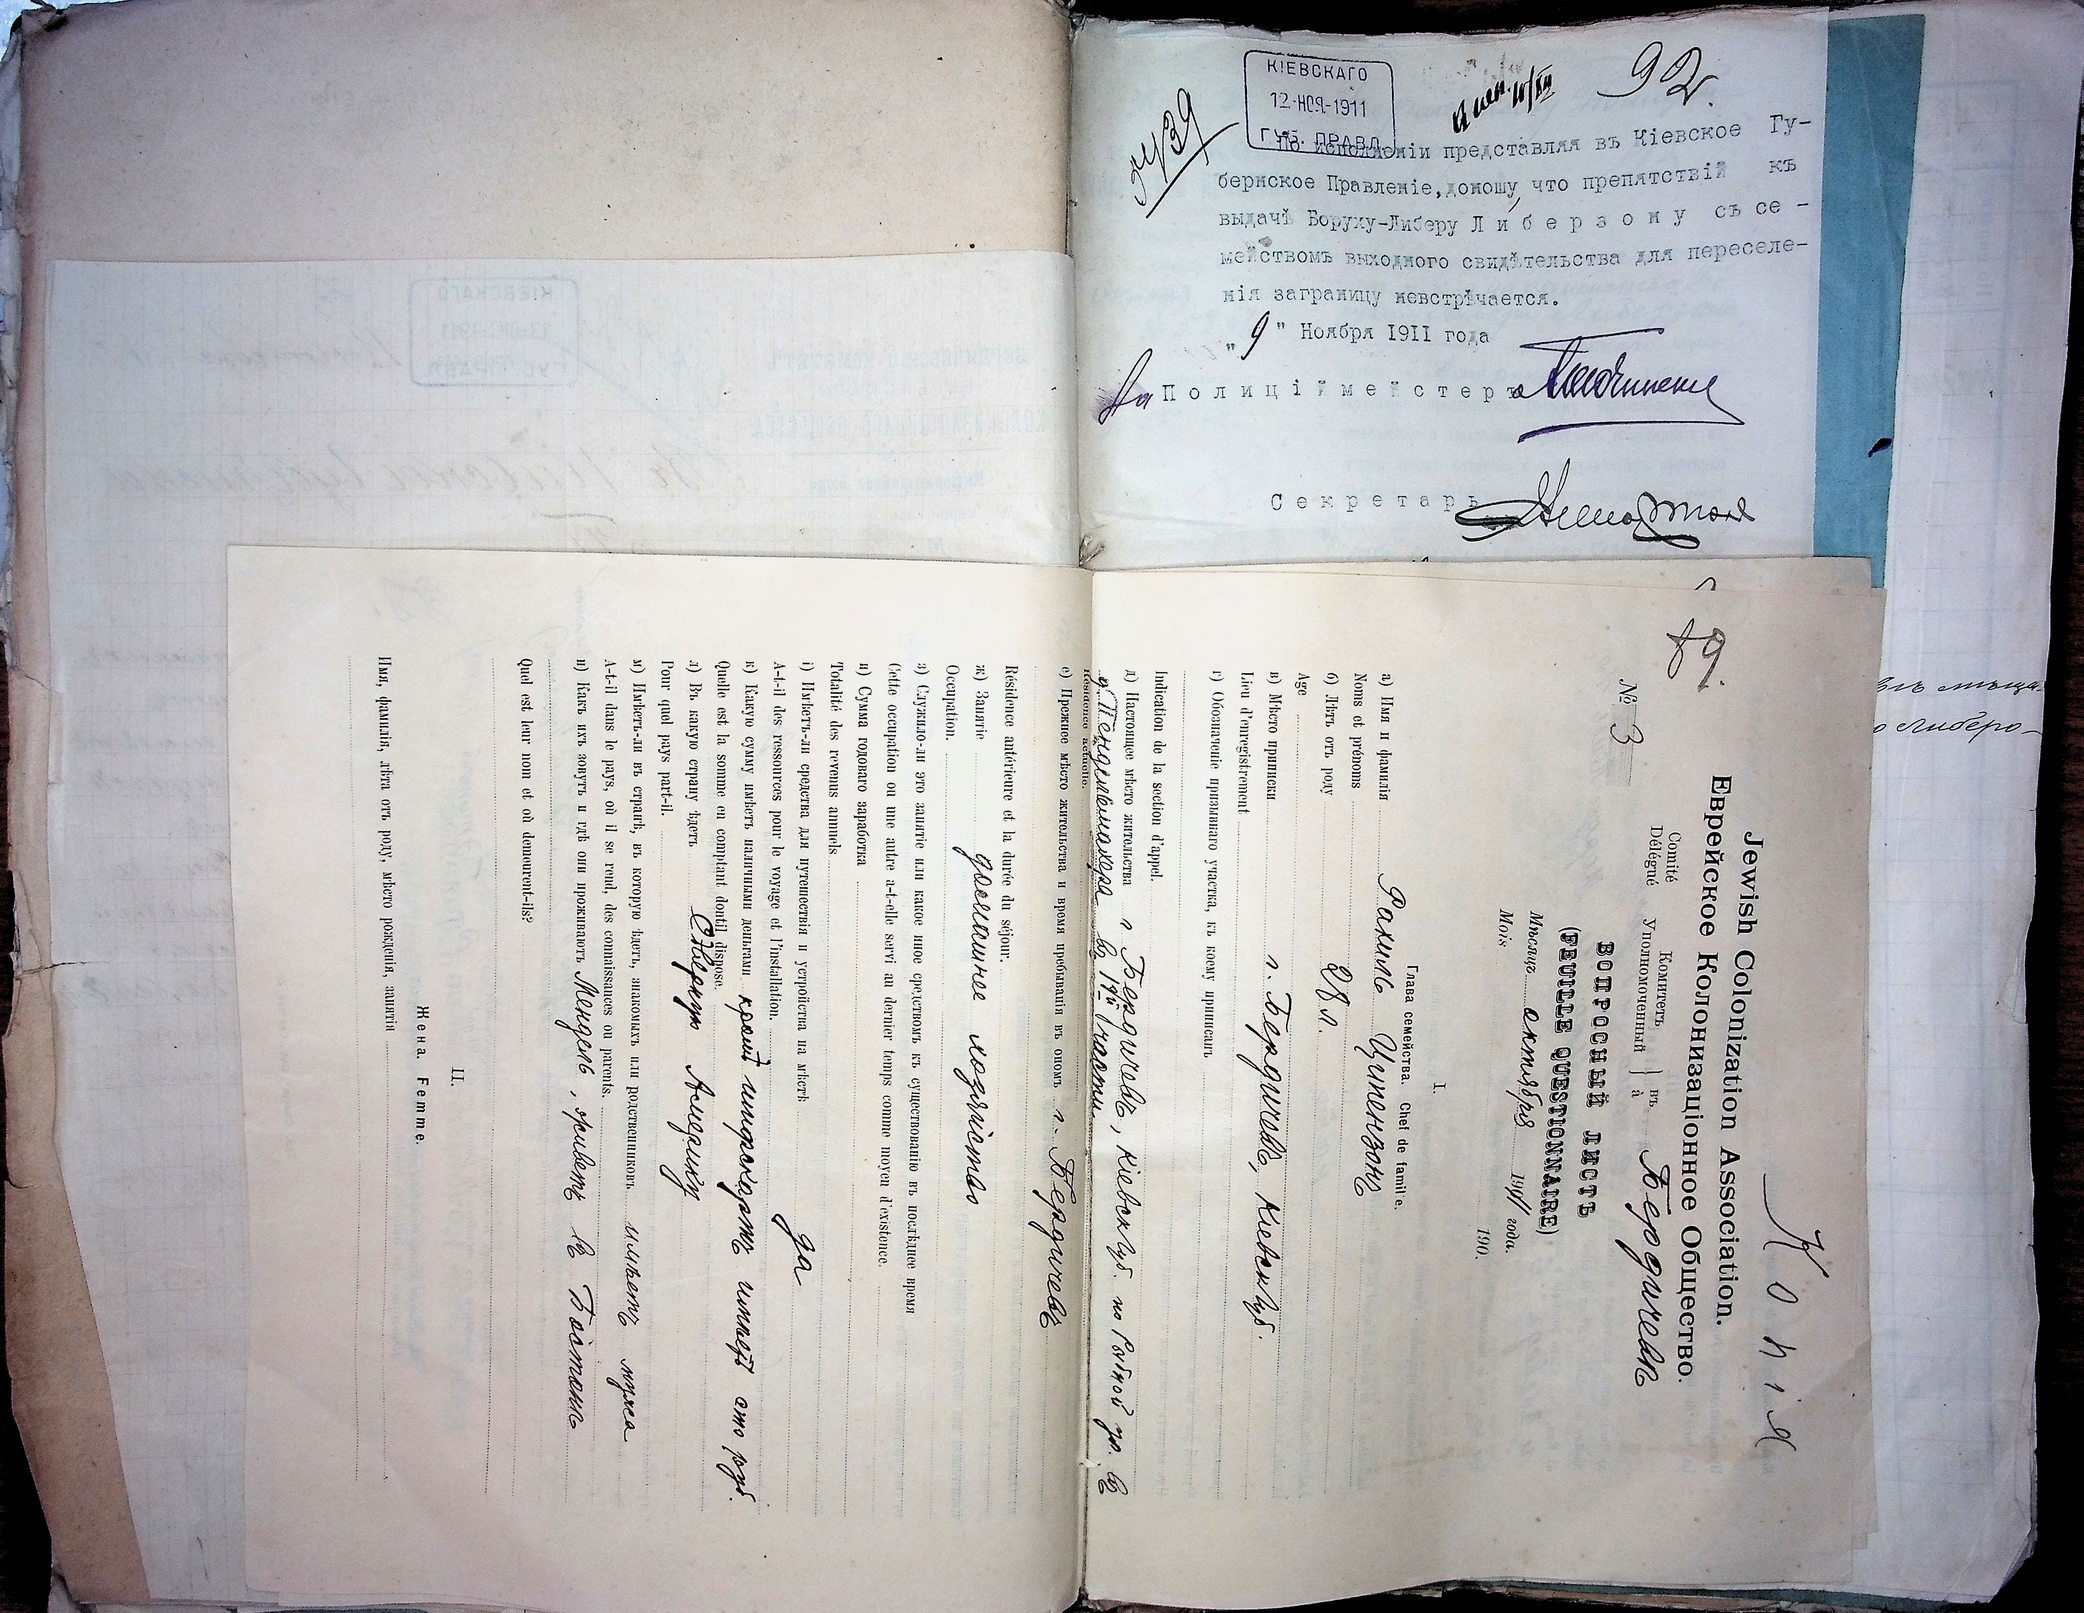 КІЕВСКАГО
12·НОЯ·1911
ГУБ. ПРАВЛ.
92.
По исполненіи представляя въ Кіевское Гу-
бернское Правленіе, доношу, что препятствій къ
выдачѣ Боруху-Либеру Либерзону съ се-
мействомъ выходного свидѣтельства для переселе-
нія заграницу невстрѣчается.
" 9 " Ноября 1911 года
За Полиціймейстера
Секретарь
Копія
89.
№ 3
Jewish Colonization Association.
Еврейское Колонизаціонное Общество.
Comité Комитетъ
Délégué Уполномоченный } въ à Бердичевѣ
ВОПРОСНЫЙ ЛИСТЪ
(FEUILLE QUESTIONNAIRE)
Мѣсяцъ октября 1911 года.
Mois 190 .
I.
Глава семейства. Chef de famille.
а) Имя и фамилія Рахиль Цитензонъ
Noms et prénoms
б) Лѣтъ отъ роду 28 л.
Age
в) Мѣсто приписки г. Бердичевъ, Кіевск. губ.
Lieu d'enregistrement
г) Обозначеніе призывнаго участка, къ коему приписанъ
Indication de la section d'appel.
д) Настоящее мѣсто жительства г. Бердичевъ, Кіевск. губ. по Рыбной ул. въ
Résidence actuelle.
д. Пендельмахера въ 1й части.
е) Прежнее мѣсто жительства и время пребыванія въ ономъ г. Бердичевъ
Résidence antérieure et la durée du séjour.
ж) Занятіе домашнее хозяйство
Occupation.
з) Служило-ли это занятіе или какое иное средствомъ къ существованію въ послѣднее время
Cette occupation ou une autre a-t-elle servi au dernier temps comme moyen d'existence.
и) Сумма годоваго заработка
Totalité des revenus annuels
і) Имѣетъ-ли средства для путешествія и устройства на мѣстѣ да
A-t-il des ressources pour le voyage et l'installation.
к) Какую сумму имѣетъ наличными деньгами кромѣ шифскарты имѣетъ сто руб.
Quelle est la somme en comptant dontil dispose.
л) Въ какую страну ѣдетъ Сѣверную Америку
Pour quel pays part-il.
м) Имѣетъ-ли въ странѣ, въ которую ѣдетъ, знакомыхъ или родственниковъ имѣетъ мужа
A-t-il dans le pays, où il se rend, des connaissances ou parents.
н) Какъ ихъ зовутъ и гдѣ они проживаютъ Мендель, живетъ въ Бостонѣ
Quel est leur nom et où demeurent-ils?
II.
Жена. Femme.
Имя, фамилія, лѣта отъ роду, мѣсто рожденія, занятія